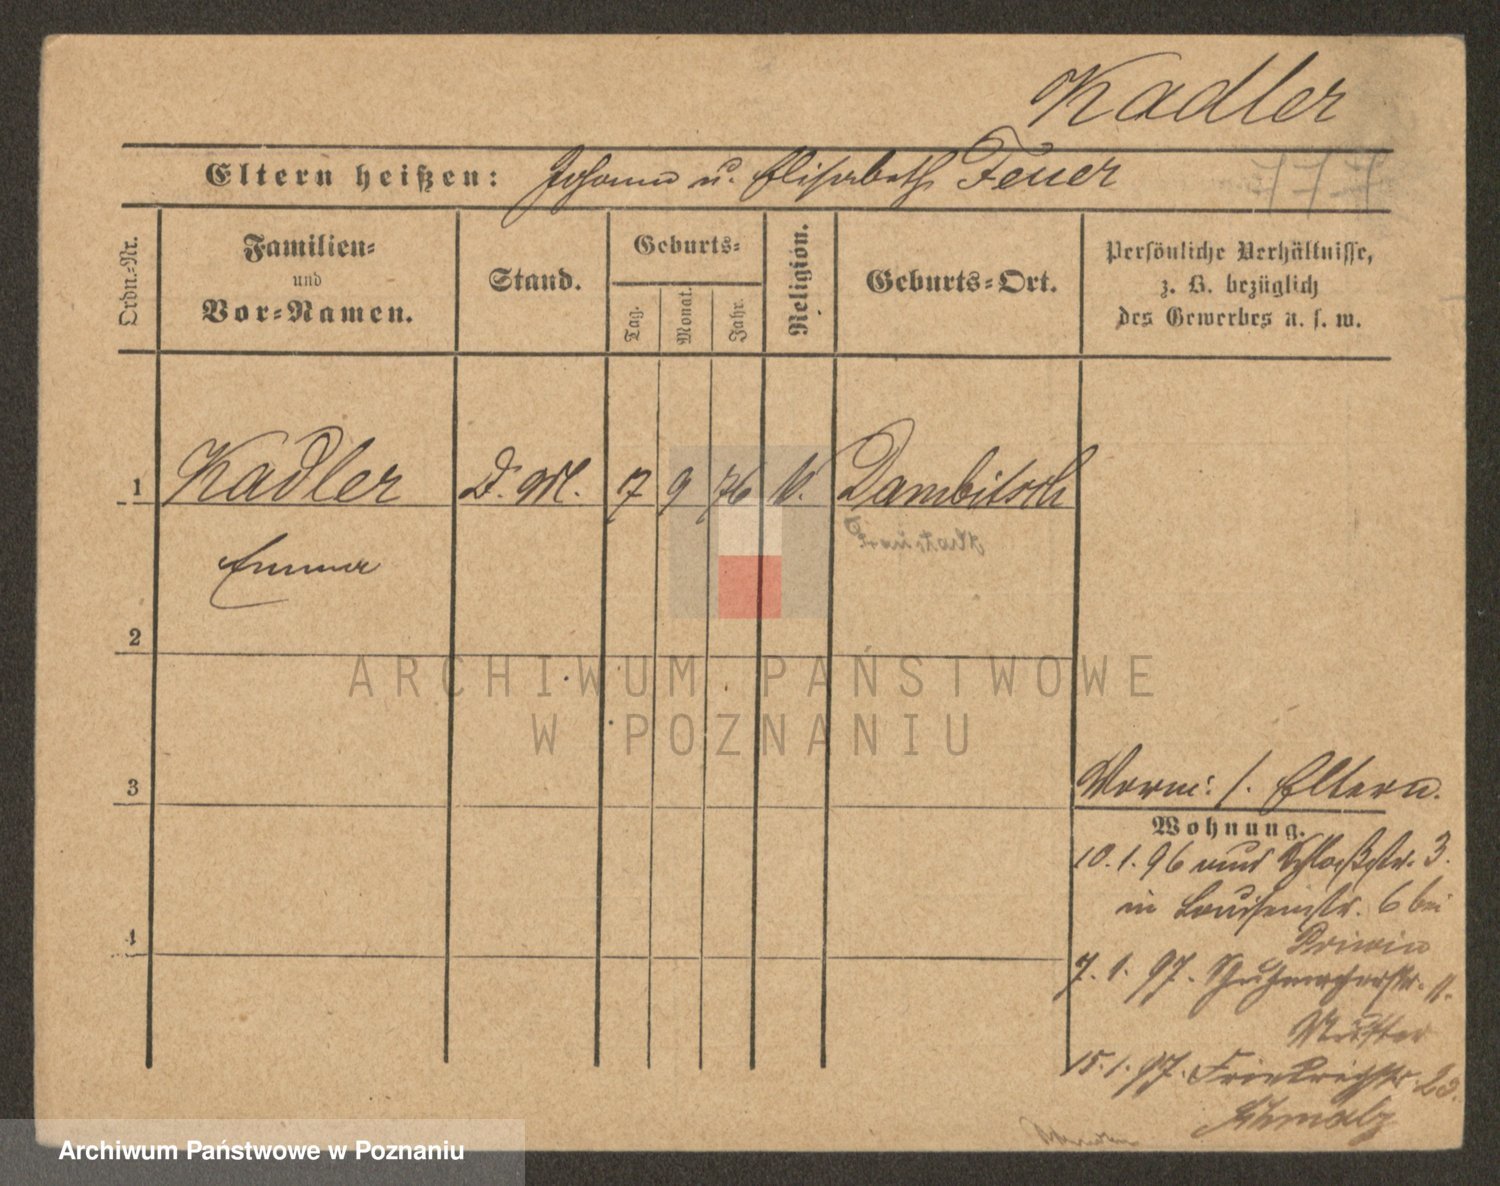 Kadler
Eltern heißen: Johann u. Elisabeth Feuer
Ordn.-Nr.
Familien-
und
Vor-Namen.
Stand.
Geburts-
Tag.
Monat.
Jahr.
Religion.
Geburts-Ort.
Persönliche Verhältnisse,
z. B. bezüglich
des Gewerbes u. s. w.
1 Kadler D. Md. 17 9 76 k. Dambitsch
Fraustadt
Emma
2
ARCHIWUM PAŃSTWOWE
W POZNANIU
3
Vorm: /. Eltern.
Wohnung.
10.1.96 Schloßstr. 3.
in Louisenstr. 6 bei
4
7.1.97. Schuhmacherstr. 11.
15.1.97. Friedrichstr. 23.
Schmalz
Archiwum Państwowe w Poznaniu